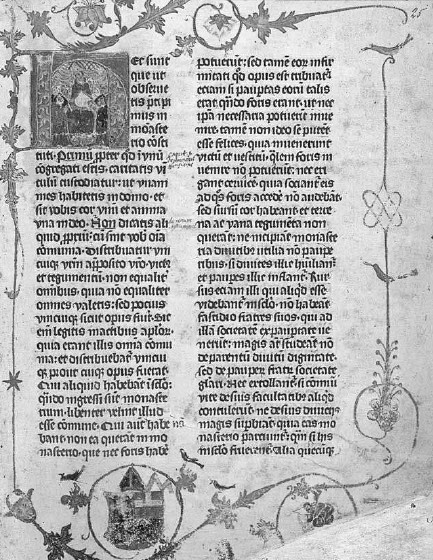 Hec sunt
que ut
obserue
tis preci
mus in
monaste
rio consti
tuti. Primum propter quod in unum
congregati estis, ut unani
mes habitetis in domo, et
sit vobis cor unum et anima
una in deo. Non dicatis ali
quid proprium: sed sint vobis omnia
communia. Distribuatur vni
cuique vestrum a preposito vestro victus
et tegumentum, non equaliter
omnibus, quia non equaliter
omnes valetis: sed potius
vnicuique sicut opus fuerit. Sic
enim legitis in actibus apostolorum,
quia erant illis omnia commu
nia: et distribuebatur vnicui
que prout cuique opus fuerat.
Qui aliquid habebant in seculo:
quando ingressi sunt monaste
rium: libenter velint illud
esse commune. Qui autem non habe
bant: non ea querant in mo
nasterio, que nec foris habe
potuerunt: sed tamen eorum infir
mitati quod opus est tribuatur
etiam si paupertas eorum talis
erat quando foris erant, ut nec
ipsa necessaria poterant inue
nire, tamen non ideo se putent
esse felices, quia inuenerunt
victum et vestitum, qualem foris in
uenire non poterant: nec eri
gant ceruicem, quia sociantur eis
ad quos foris accedere non audebant,
sed sursum cor habeant: et terre
na ac vana non
querant: ne incipiant monaste
ria diuitibus vtilia non paupe
ribus: si diuites illic humiliantur
et pauperes illic inflantur. Rur
sus etiam illi qui aliquid esse
videbantur in seculo: non habeant
fastidio fratres suos, qui ad
illam societatem ex paupertate ve
nerunt: magis autem studeant non
de parentum diuitum dignitate:
sed de pauperum fratrum societate
gloriari. Nec extollantur: si commu
ni vite de suis facultatibus aliquid
contulerunt: ne de suis diuitiis
magis superbiant: quia eas mo
nasterio partiuntur: quam si his
in seculo fruerentur. Alia quecumque